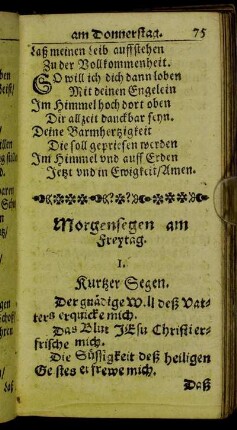 am Donnerstag. 75
Laß meinen Leib aufferstehen
Zu der Vollkommenheit.
SO will ich dich dann loben
Mit deinen Engelein
Im Himmel hoch dort oben
Dir allzeit danckbar seyn.
Deine Barmhertzigkeit
Die soll gepriesen werden
Im Himmel vnd auff Erden
Jetzt vnd in Ewigkeit/Amen.
Morgensegen am
Freytag.
I.
Kurtzer Segen.
Der gnädige Will deß Vat-
ters erquicke mich.
Das Blut JEsu Christi er-
frische mich.
Die Süssigkeit deß heiligen
Geistes erfrewe mich.
Daß